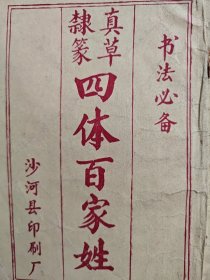 书法必备
真草
隸篆
四体百家姓
沙河县印刷厂